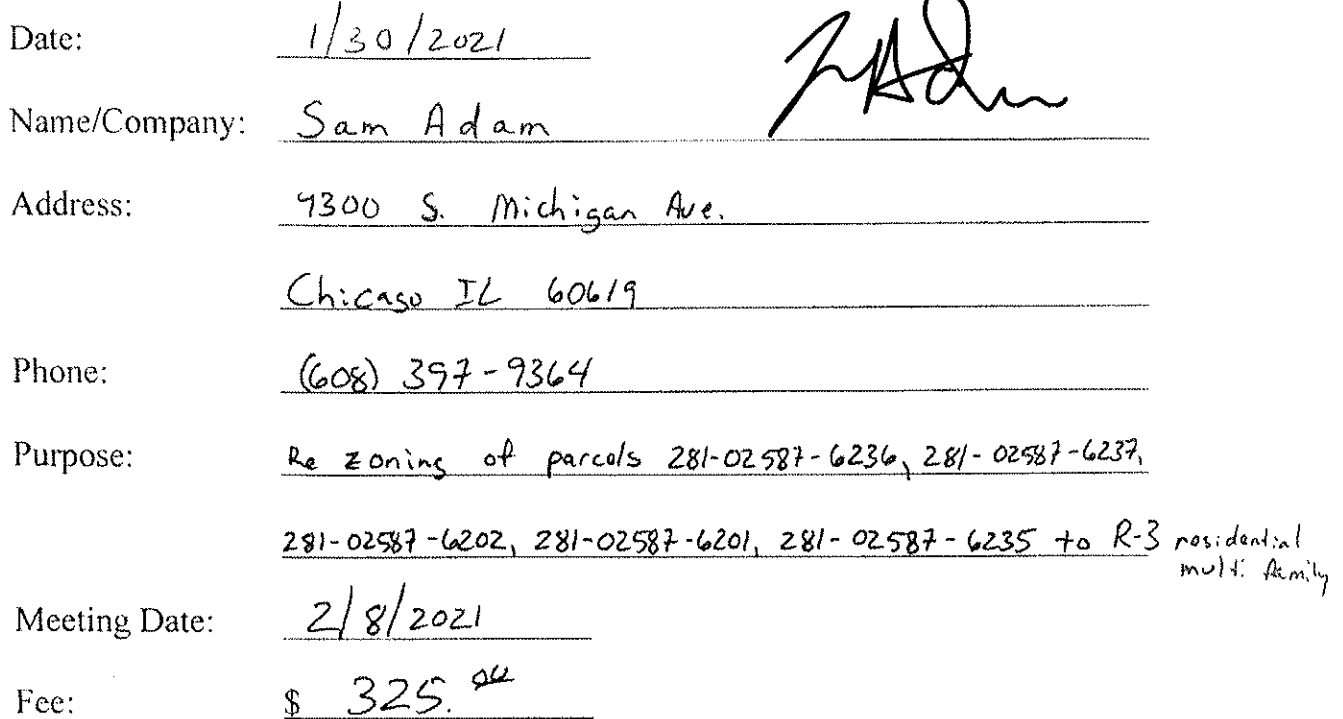 Date: 1/30/2021
Name/Company: Sam Adam
Address: 9300 S. Michigan Ave.
Chicago IL 60619
Phone: (608) 397-9364
Purpose: Re zoning of parcels 281-02587-6236, 281-02587-6237,
281-02587-6202, 281-02587-6201, 281-02587-6235 to R-3 residential
multi family
Meeting Date: 2/8/2021
Fee: $ 325.00